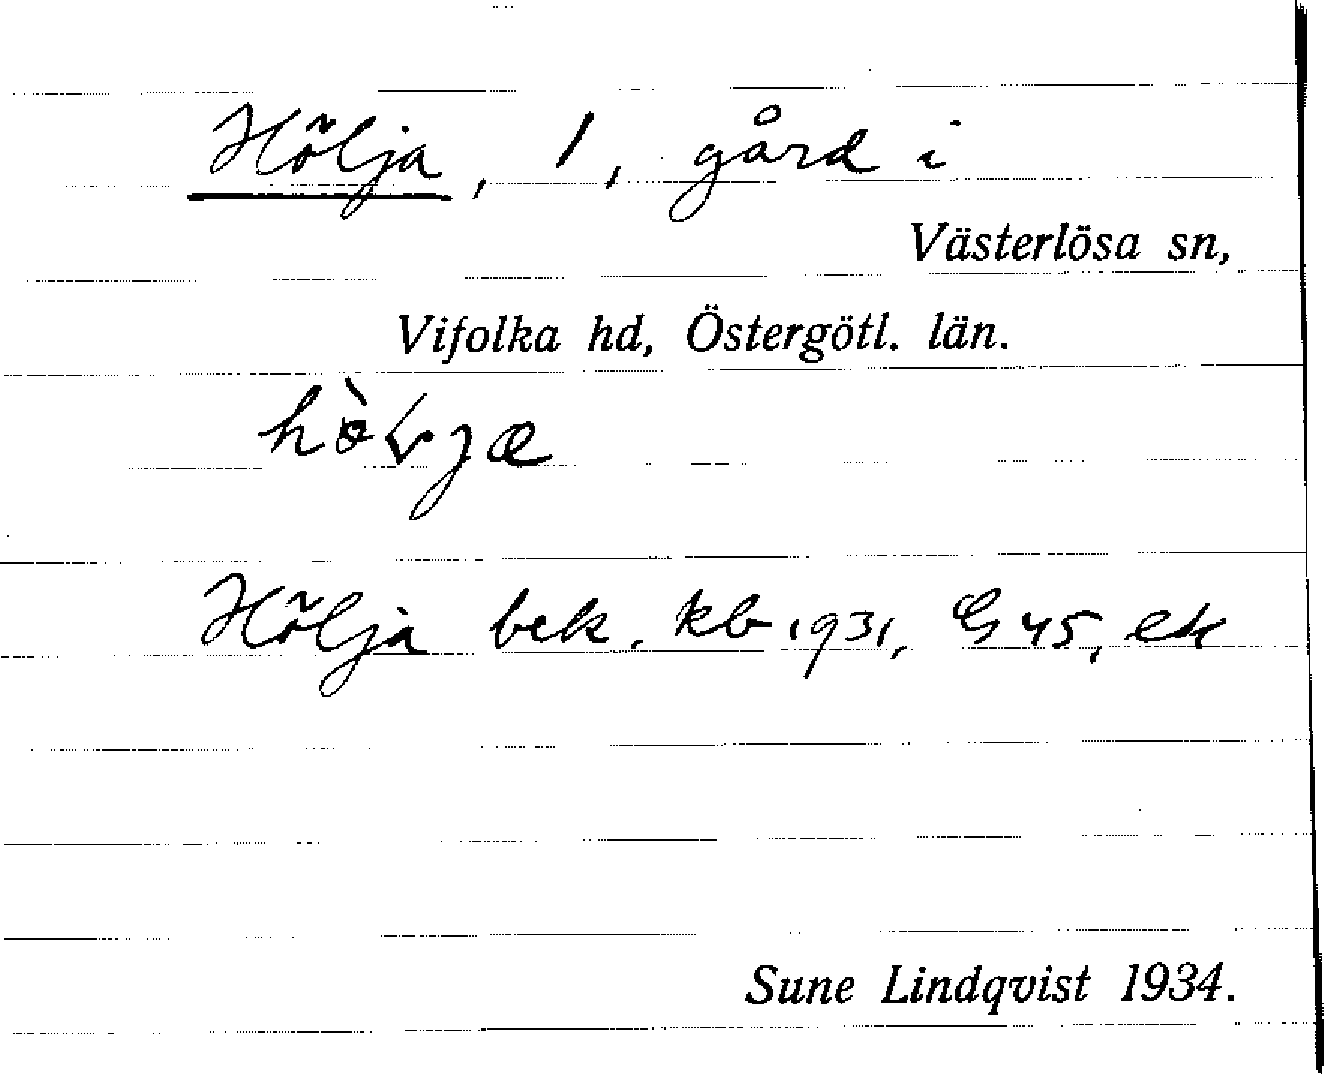 Hölja, 1, gård i
Västerlösa sn,
Vifolka hd, Östergötl. län.
Hölja bek. kb 1931, G45, ek
Sune Lindqvist 1934.